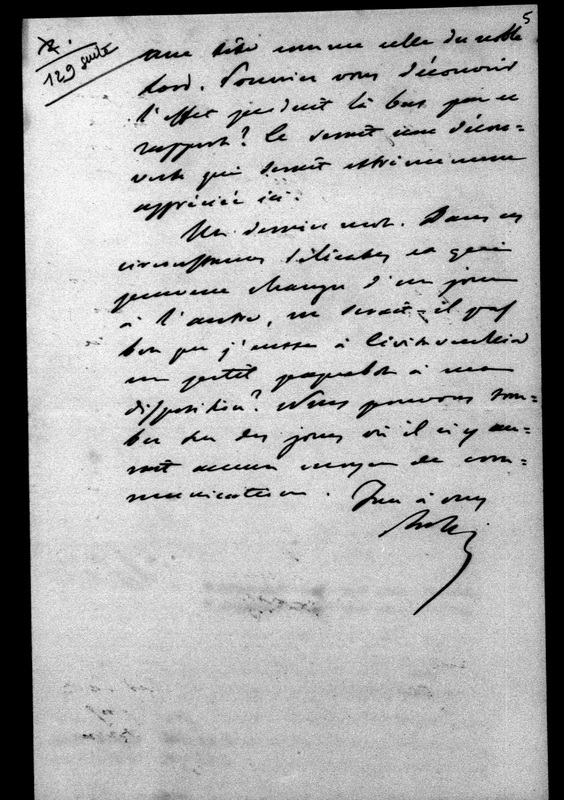 5
129 suite
une tête comme celle du noble
Lord. Pourriez vous découvrir
l'effet produit là bas par ce
rapport? Ce serait une décou-
verte qui serait extrêmement
appréciée ici.
Un dernier mot. Dans ces
circonstances délicates et qui
peuvent changer d'un jour
à l'autre, ne serait-il pas
bon que j'eusse à Civitavecchia
un petit paquebot à ma
disposition? Nous pouvons tom-
ber sur des jours où il n'y au-
rait aucun moyen de com-
munication. Tout à vous